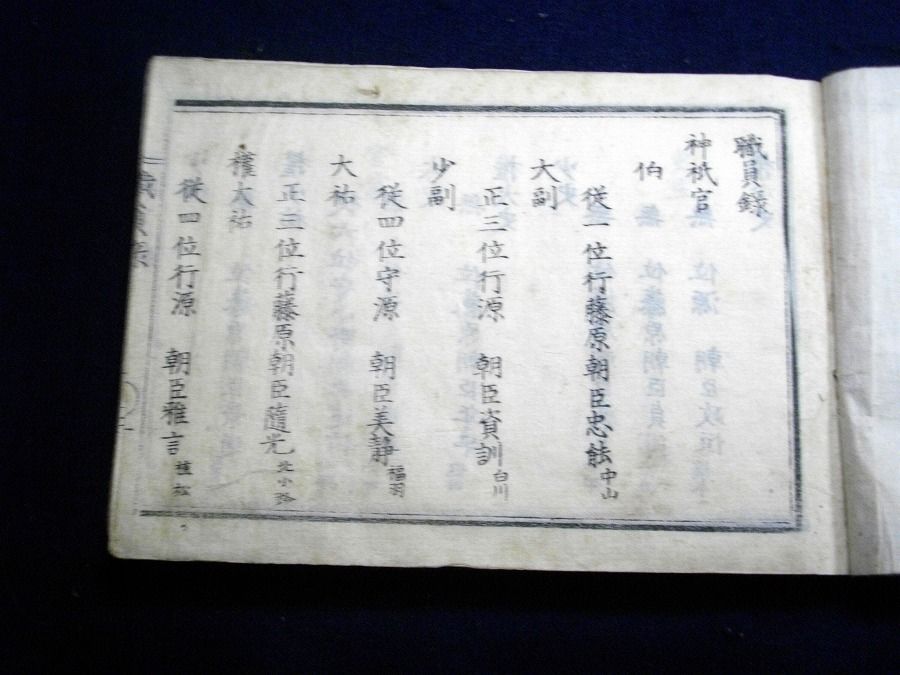 職員録
神祇官
伯
従一位行藤原朝臣忠能 中山
大副
正三位行源 朝臣資訓 白川
少副
従四位守源 朝臣美静 福羽
大祐
正三位行藤原朝臣隨光 北小路
權大祐
従四位行源 朝臣雅言 植松